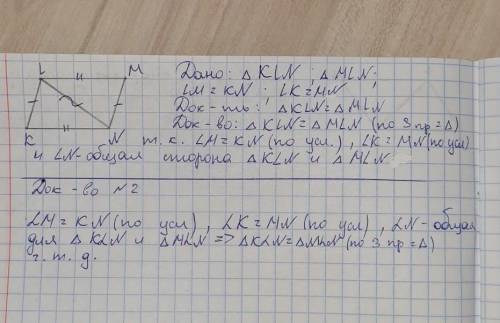 L M
K N
Дано: △KLN ; △MLN;
LM = KN ; LK = MN
Док-ть: △KLN = △MLN
Док-во: △KLN = △MLN (по 3 пр = △)
т.к. LM = KN (по усл.), LK = MN (по усл)
и LN - общая сторона △KLN и △MLN
Док-во №2
LM = KN (по усл), LK = MN (по усл), LN - общая
для △KLN и △MLN => △KLN = △MLN (по 3 пр = △)
ч.т.д.